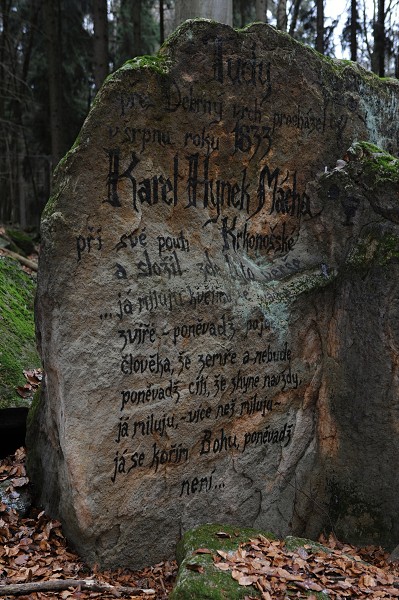 Tudy
přes Debrný vrch procházel
v srpnu roku 1833
Karel Hynek Mácha
při své pouti Krkonošské
a složil zde
...já miluju květinu
zvíře, - poněvadž
člověka, že zemře a nebude,
poněvadž cítí, že zhyne navždy,
já miluju, - více než miluju -
já se kořím Bohu, poněvadž
není...